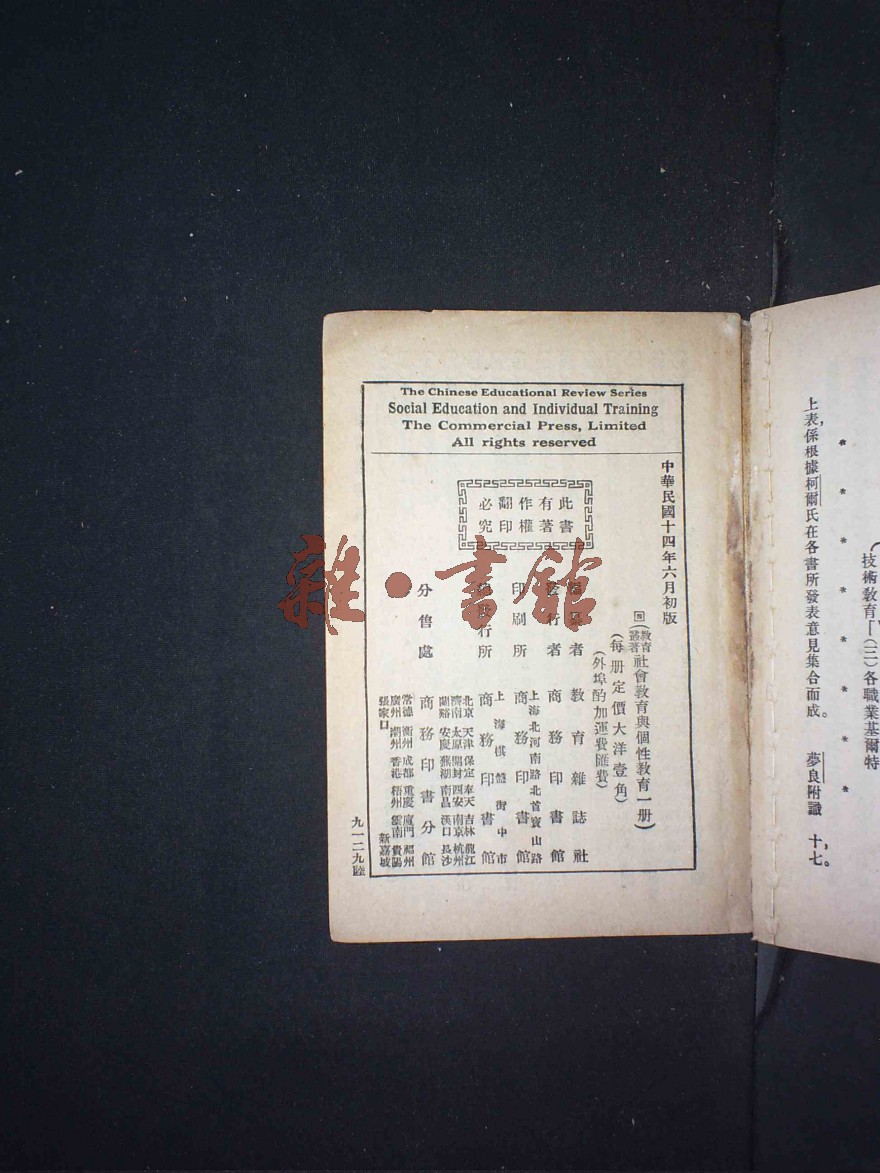 技術教育「(三)各職業基爾特
* * * * * * * *
上表係根據柯爾氏在各書所發表意見集合而成。 夢良附識 十，七。
The Chinese Educational Review Series
Social Education and Individual Training
The Commercial Press, Limited
All rights reserved
中華民國十四年六月初版
教育叢著 社會教育與個性教育一册
(每册定價大洋壹角)
(外埠酌加運費匯費)
此書
有著
作權
翻印
必究
者 教育雜誌社
發行者 商務印書館
上海北河南路北首寶山路
印刷所 商務印書館
上海棋盤街中市
發行所 商務印書館
北京 天津 保定 奉天 吉林 龍江
濟南 太原 開封 西安 南京 杭州
蘭谿 安慶 蕪湖 南昌 漢口 長沙
分售處 商務印書分館
常德 衡州 成都 重慶 廈門 福州
廣州 潮州 香港 梧州 雲南 貴陽
張家口 新嘉坡
九一二九陸
雜·書館